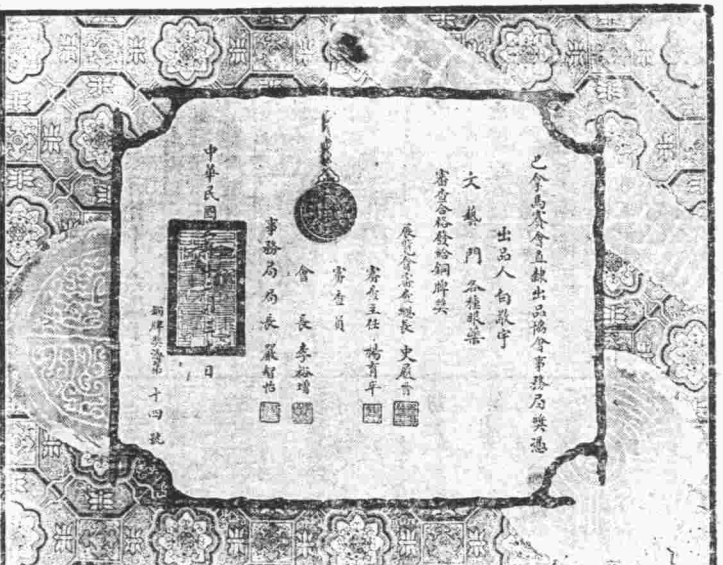 巴拿馬賽會直隸出品協會事務局獎憑
出品人 白敬宇
文藝門 各種眼藥
審查合格發給銅牌獎
展覽會審查總長 史履晉
審查主任 楊育平
審查員
會長 李裕增
事務局局長 嚴智怡
中華民國 日
銅牌獎憑第 十四 號